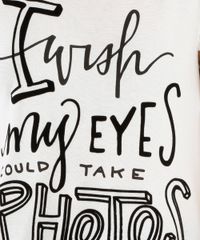 I wish
my EYES
COULD TAKE
PHOTOS